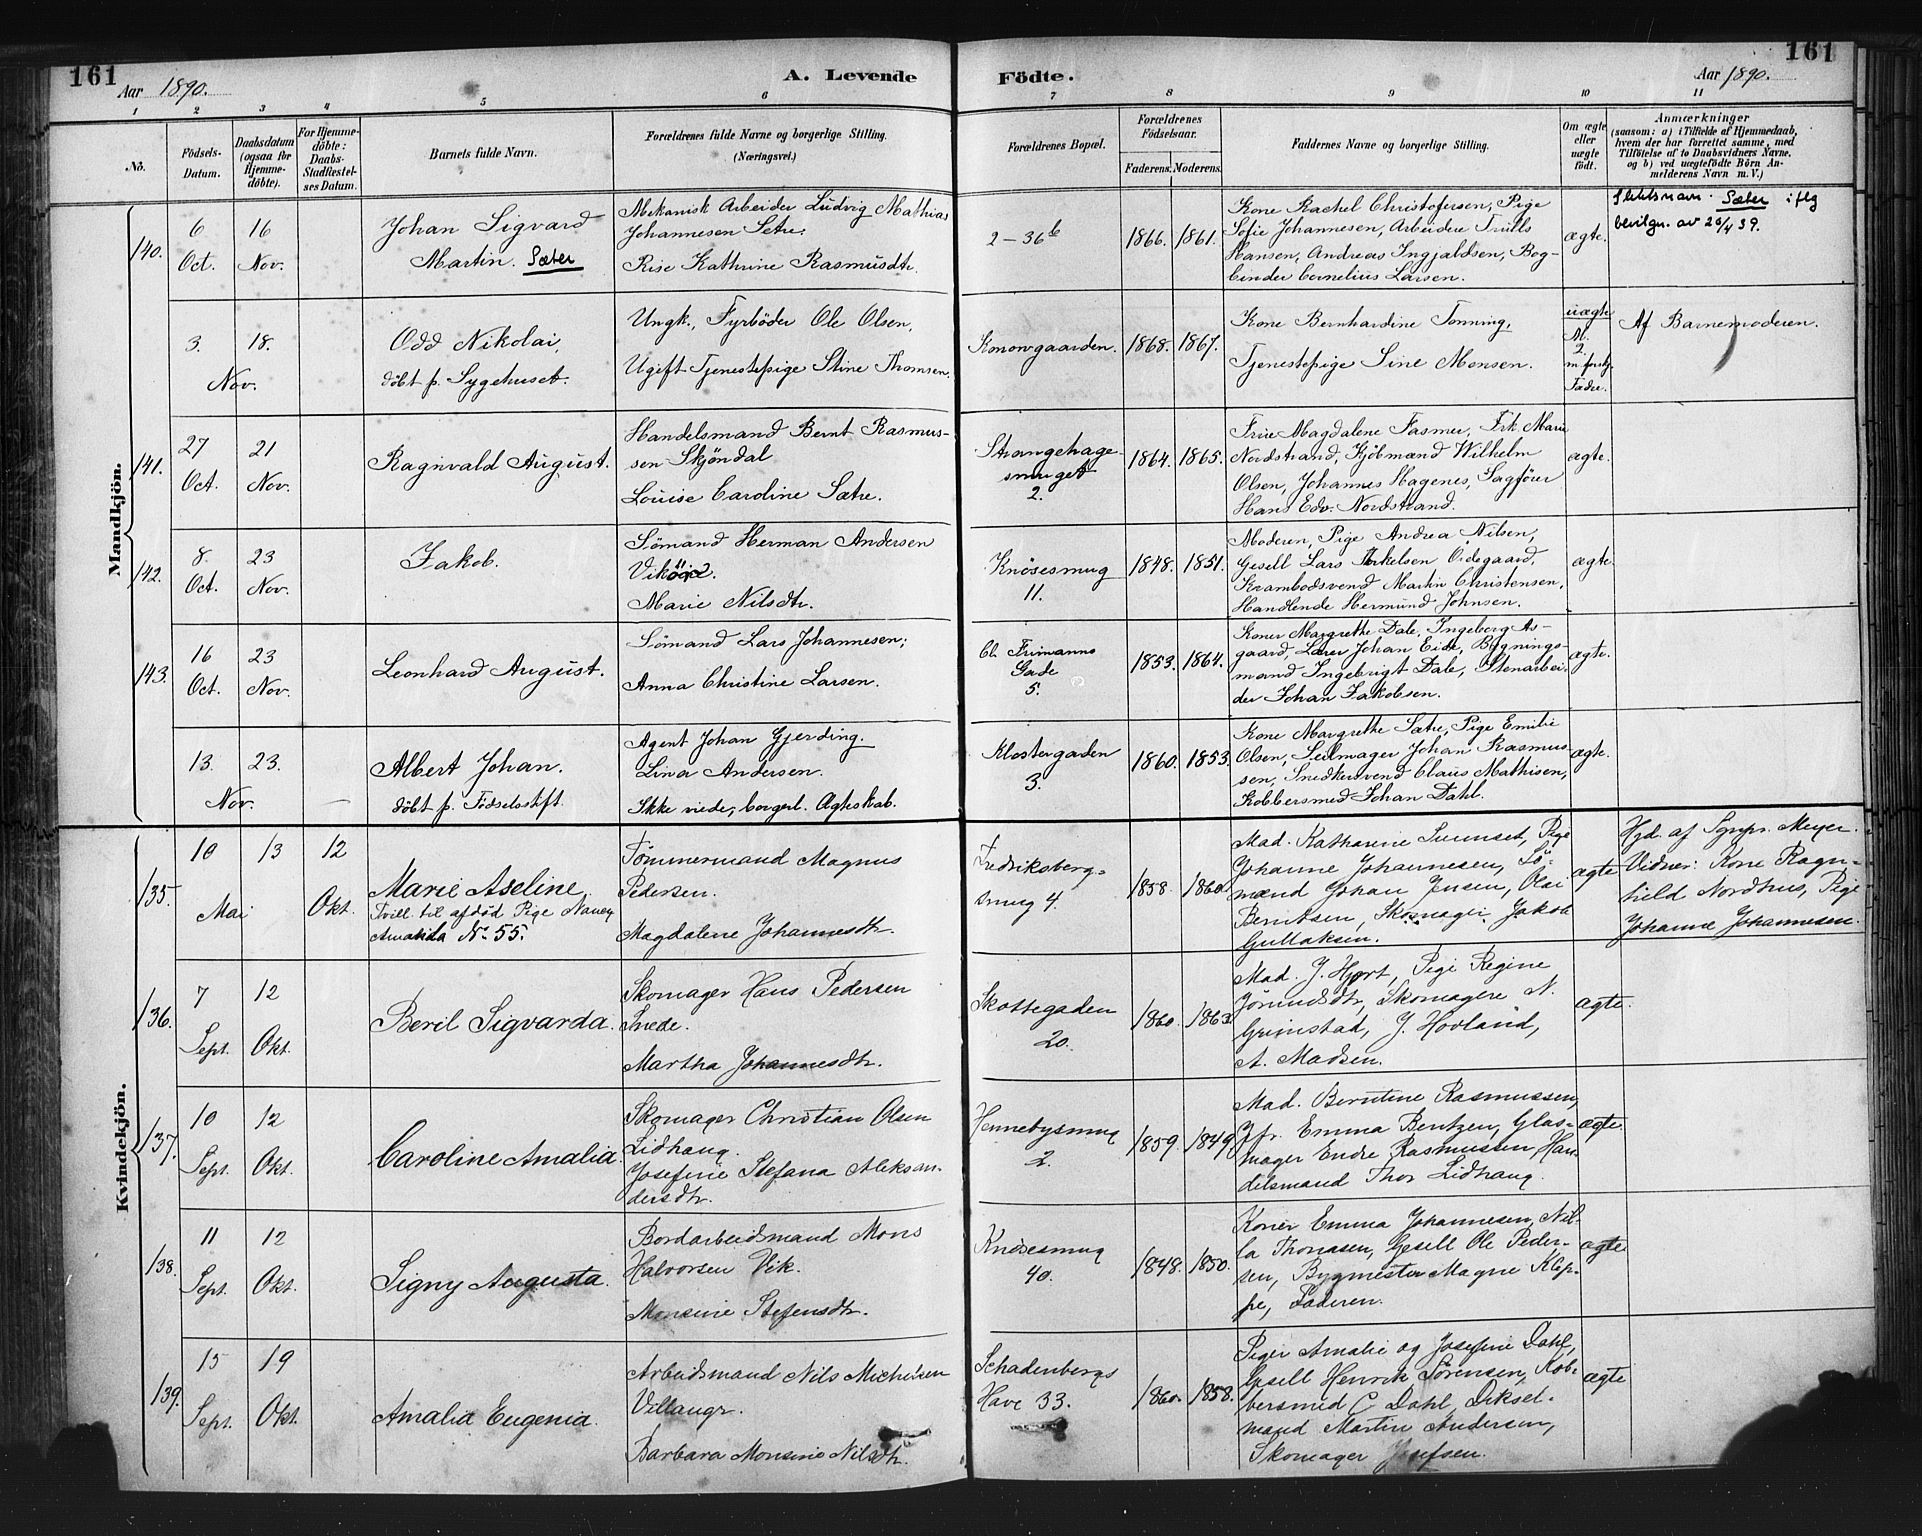 161
Aar 1890.
A. Levende
Födte.
Aar 1890.
161
1
2
3
4
5
6
7
8
9
10
11
No.
Födsels-
Datum.
Daabsdatum
(ogsaa for
Hjemme-
döbte).
For Hjemme-
döbte:
Daabs-
Stadfæstel-
ses Datum.
Barnets fulde Navn.
Forældrenes fulde Navne og borgerlige Stilling.
(Næringsvei.)
Forældrenes Bopæl.
Forældrenes
Födselsaar.
Faderens.
Moderens.
Faddernes Navne og borgerlige Stilling.
Om ægte
eller
uægte
födt.
Anmærkninger
(saasom: a) i Tilfælde af Hjemmedaab,
hvem der har forrettet samme, med
Tilföielse af to Daabsvidners Navne,
og b) ved uægtefödte Börn An-
melderens Navn m. V.)
Mandkjön.
140.
6
Oct.
16
Nov.
Johan Sigvard
Martin. Sæter
Mekanisk Arbeider Ludvig Mathias
Johannesen Setre.
Rise Kathrine Rasmusdtr.
2-36b
1866.
1861.
Kone Rachel Christofersen, Pige
Sofie Johannesen, Arbeidere Truls
Hansen, Andreas Ingjaldsen, Bog-
binder Cornelius Larsen.
ægte.
Slektsnavn Sæter iflg
bevilgn. av 26/4 39.
3.
18.
Nov.
Odd Nikolai,
döbt p. Sygehuset.
Ungk., Fyrböder Ole Olsen,
Ugift Tjenestepige Stine Thomsen.
Konowgaarden.
1868.
1867.
Kone Bernhardine Tonning,
Tjenestepige Sine Monsen.
uægte
M.
2.
m. forskj.
Fadre.
Af Barnemoderen.
141.
27
Oct.
21
Nov.
Ragnvald August.
Handelsmand Bernt Rasmus-
sen Skjöndal
Louise Caroline Sætre.
Strangehage-
smuget
2.
1864.
1865.
Frue Magdalene Fasmer, Frk Marie
Nordstrand, Kjöbmænd Wilhelm
Olsen, Johannes Hagenes, Sagförer
Hans Edv. Nordstrand.
ægte.
142.
8.
Oct.
23
Nov.
Jakob.
Sömand Herman Andersen
Marie Nilsdtr.
Knösesmug
11.
1848.
1851.
Moderen, Pige Andrea Nilsen,
Gesell Lars Terkelsen Ödegaard,
Krambodsvend Martin Christensen,
Handlende Hermund Johnsen.
ægte.
143.
16
Oct.
23
Nov.
Leonhard August.
Sömand Lars Johannesen,
Anna Christine Larsen.
Cl. Frimanns
Gade
5.
1853.
1864.
Koner Margrethe Dale, Ingeborg As-
gaard, Lærer Johan Eide, Bygnings-
mand Ingebrigt Dale, Stenarbei-
der Johan Jakobsen.
ægte.
13.
23.
Nov.
Albert Johan.
döbt p. Födselsstift.
Agent Johan Gjerding.
Lina Andersen.
Ikke viede, borgerl. Ægteskab.
Klostergaden
3.
1860.
1853.
Kone Margrethe Sætre, Pige Emilie
Olsen, Seilmager Johan Rasmus-
sen, Snedkersvend Claus Mathisen,
Kobbersmed Johan Dahl.
ægte.
Kvindekjön.
135.
10
Mai
13
12
Okt.
Marie Aseline,
Tvill. til afdöd Pige Nancy
Amanda No 55.
Tömmermand Magnus
Pedersen.
Magdalene Johannesdtr.
Fredriksberg-
smug 4.
1858.
1860.
Mad. Katharine Sumset, Pige
Johanne Johannesen, Sö-
mænd Johan Jensen, Olai
Berntsen, Skomager Jakob
Gullaksen.
ægte
Hjd. af Sgnpr. Meyer.
Vidner: Kone Ragn-
hild Nordhus, Pige
Johanne Johannesen.
136.
7
Sept.
12
Okt.
Beril Sigvarda.
Skomager Hans Pedersen
Snede.
Martha Johannesdtr.
Skottegaden
20.
1860.
1863.
Mad. J. Hjort, Pige Regine
Jörundsdtr, Skomagere N.
Grimstad, J. Hovland,
A. Madsen.
ægte.
137.
10
Sept.
12
Okt.
Caroline Amalia.
Skomager Christian Olsen
Lidhaug.
Josefine Stefana Aleksan-
dersdtr.
Hennebysmug
2.
1859.
1849.
Mad. Berntine Rasmussen,
Jfr. Emma Bentzen, Glas-
mager Endre Rasmussen, Han-
delsmand Thor Lidhaug.
ægte.
138.
11
Sept.
12
Okt.
Signy Augusta.
Bordarbeidsmand Mons
Halvorsen Vik.
Monsine Stefensdtr.
Knösesmug
40.
1848.
1850.
Koner Emma Johannesen, Nil-
la Thomasen, Gesell Ole Peder-
sen, Bygmester Magne Klep-
pe, Faderen.
ægte
139.
15
Sept.
19
Okt.
Amalia Eugenia.
Arbeidsmand Nils Michelsen
Villanger.
Barbara Monsine Nilsdtr.
Schadenbergs
Have 33.
1860.
1858.
Piger Amalie og Josefine Dahl,
Gesell Henrik Sörensen, Kob-
bersmed C Dahl, Diksel-
mand Martin Andersen,
Skomager Josefsen.
ægte